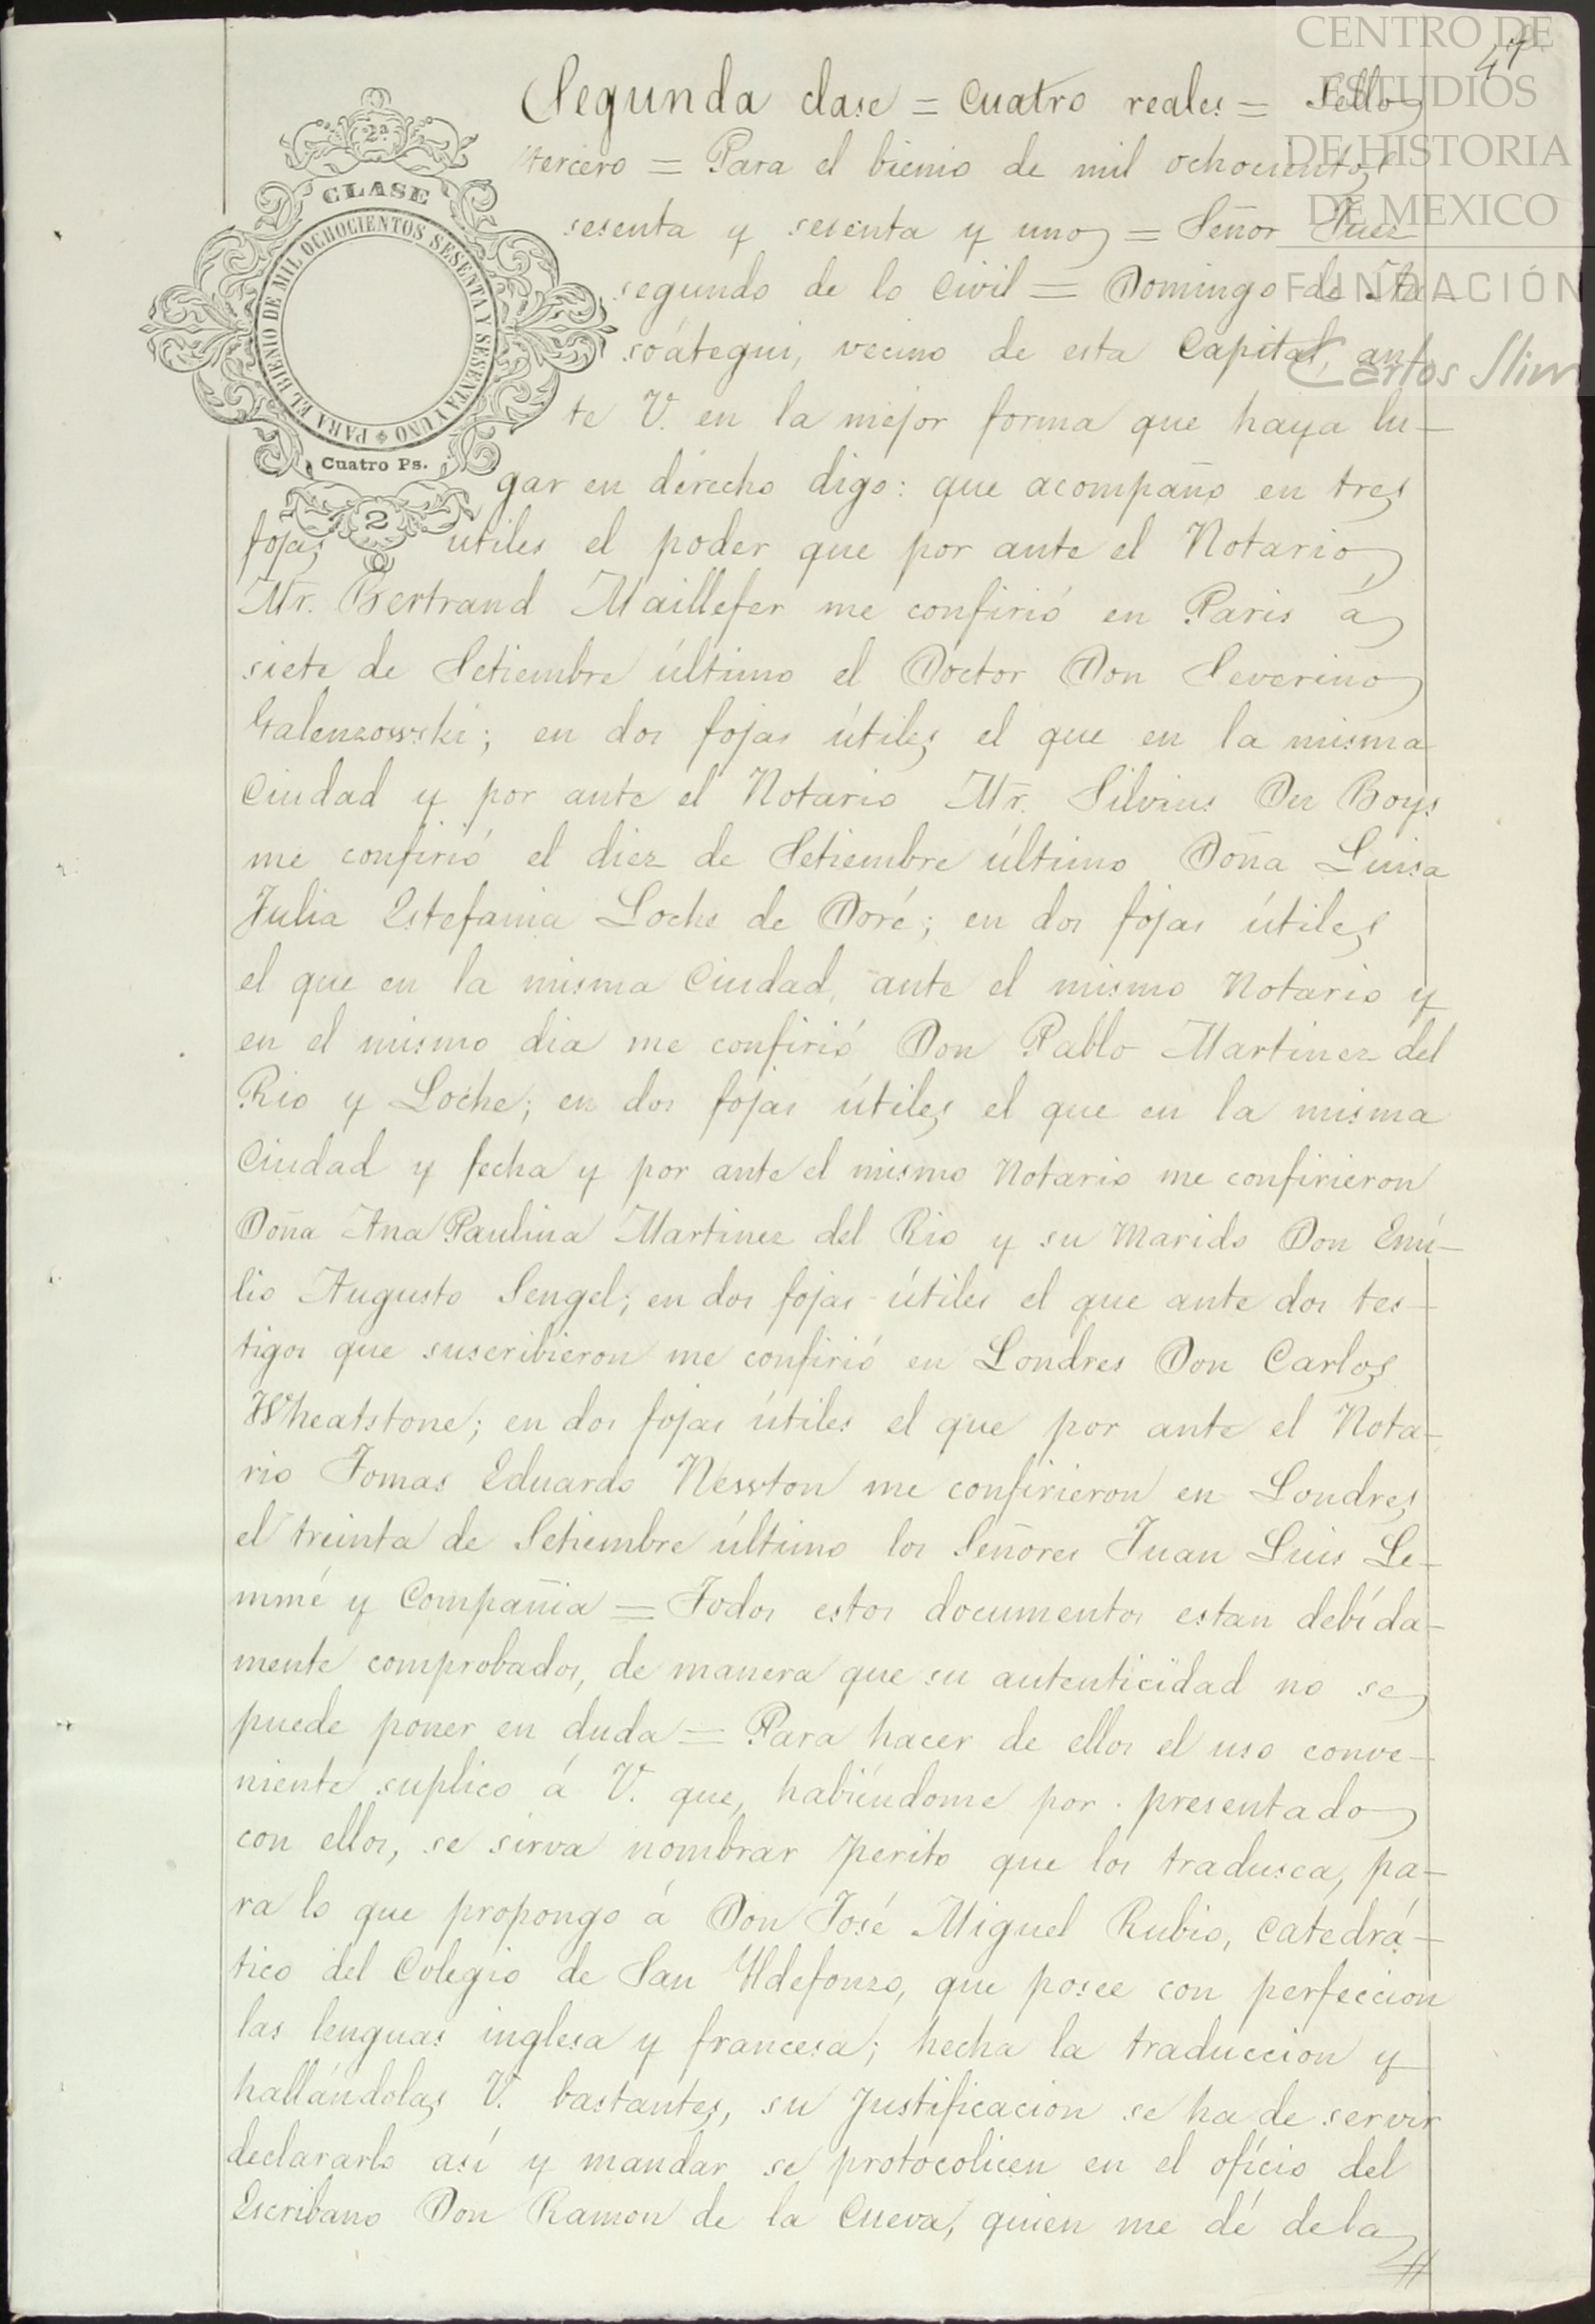 47
CENTRO DE
ESTUDIOS
DE HISTORIA
DE MEXICO
FUNDACIÓN
Carlos Slim
2ª
CLASE
PARA EL BIENIO DE MIL OCHOCIENTOS SESENTA Y SESENTA Y UNO
Cuatro Ps.
2
Segunda clase = Cuatro reales = Sello
tercero = Para el bienio de mil ochocientos
sesenta y sesenta y uno = Señor Juez
segundo de lo Civil = Domingo de An-
soátegui, vecino de esta Capital, an-
te V. en la mejor forma que haya lu-
gar en derecho digo: que acompaño en tres
fojas utiles el poder que por ante el Notario
Mr. Bertrand Maillefer me confirió en Paris á
siete de Setiembre último el Doctor Don Severino
Galenzowski; en dos fojas útiles el que en la misma
Ciudad y por ante el Notario Mr. Silvius Du Boys
me confirió el diez de Setiembre último Doña Luisa
Julia Estefania Loche de Doré; en dos fojas útiles
el que en la misma Ciudad, ante el mismo Notario y
en el mismo dia me confirió Don Pablo Martinez del
Rio y Loche; en dos fojas útiles el que en la misma
Ciudad y fecha y por ante el mismo Notario me confirieron
Doña Ana Paulina Martinez del Rio y su Marido Don Emí-
lio Augusto Sengel; en dos fojas útiles el que ante dos tes-
tigos que suscribieron me confirió en Londres Don Carlos
Wheatstone; en dos fojas útiles el que por ante el Nota-
rio Tomas Eduardo Newton me confirieron en Londres
el treinta de Setiembre último los Señores Juan Luis Le-
mmé y Compañia = Todos estos documentos estan debída-
mente comprobados, de manera que su autenticidad no se
puede poner en duda = Para hacer de ellos el uso conve-
niente suplico á V. que, habiéndome por presentado
con ellos, se sirva nombrar perito que los tradusca, pa-
ra lo que propongo á Don José Miguel Rubio, Catedrá-
tico del Colegio de San Yldefonso, que posee con perfeccion
las lenguas inglesa y francesa; hecha la traduccion y
hallándolas V. bastantes, su Justificacion se ha de servir
declararlo así y mandar se protocolicen en el oficio del
Escribano Don Ramon de la Cueva, quien me dé de la